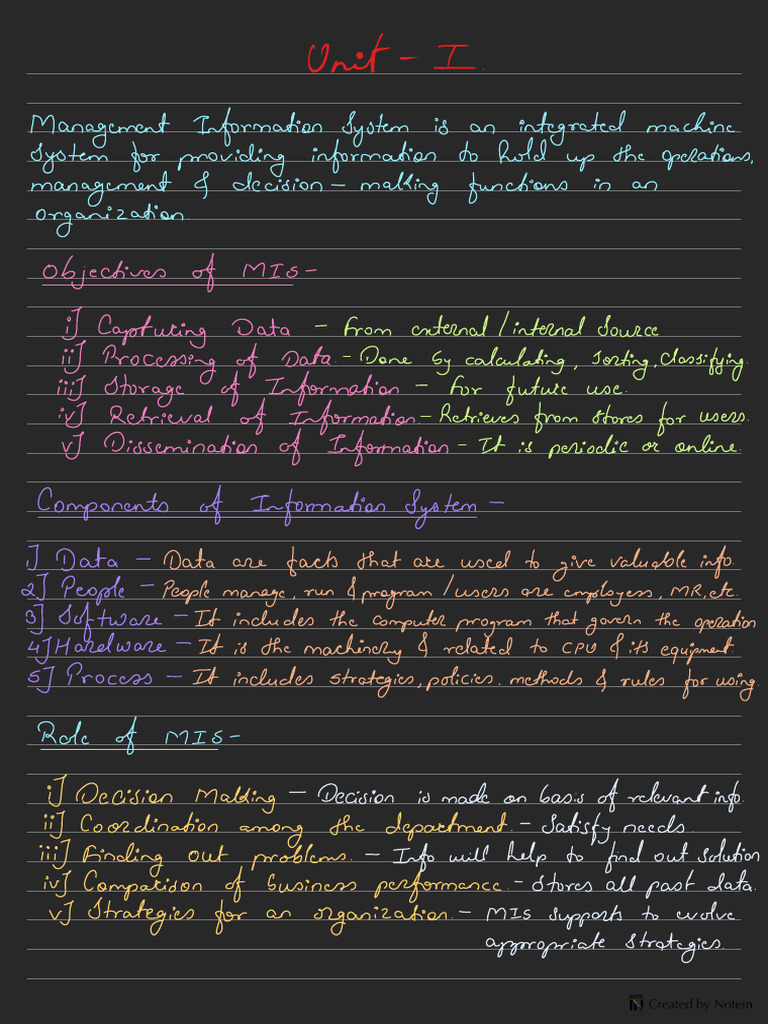 Unit - I.
Management Information System is an integrated machine
system for providing information to hold up the operations,
management & decision - making functions in an
organization.
Objectives of MIS -
i] Capturing Data - From external / internal Source
ii] Processing of Data. - Done by calculating, sorting, classifying.
iii] Storage of Information - For future use.
iv] Retrieval of Information. - Retrieves from stores for users.
v] Dissemination of Information - It is periodic or online.
Components of Information System -
1] Data - Data are facts that are used to give valuable info.
2] People - People manage, run & program / users are employess, MR, etc.
3] Software - It includes the computer program that govern the operation
4] Hardware - It is the machinery & related to CPU & its equipment.
5] Process - It includes strategies, policies. methods & rules for using.
Role of MIS -
i] Decision Making - Decision is made on basis of relevant info.
ii] Coordination among the department. - Satisfy needs.
iii] Finding out problems. - Info will help to find out solution
iv] Comparison of business performance. - Stores all past data.
v] Strategies for an organization. - MIS supports to evolve
appropriate strategies.
Created by Notein